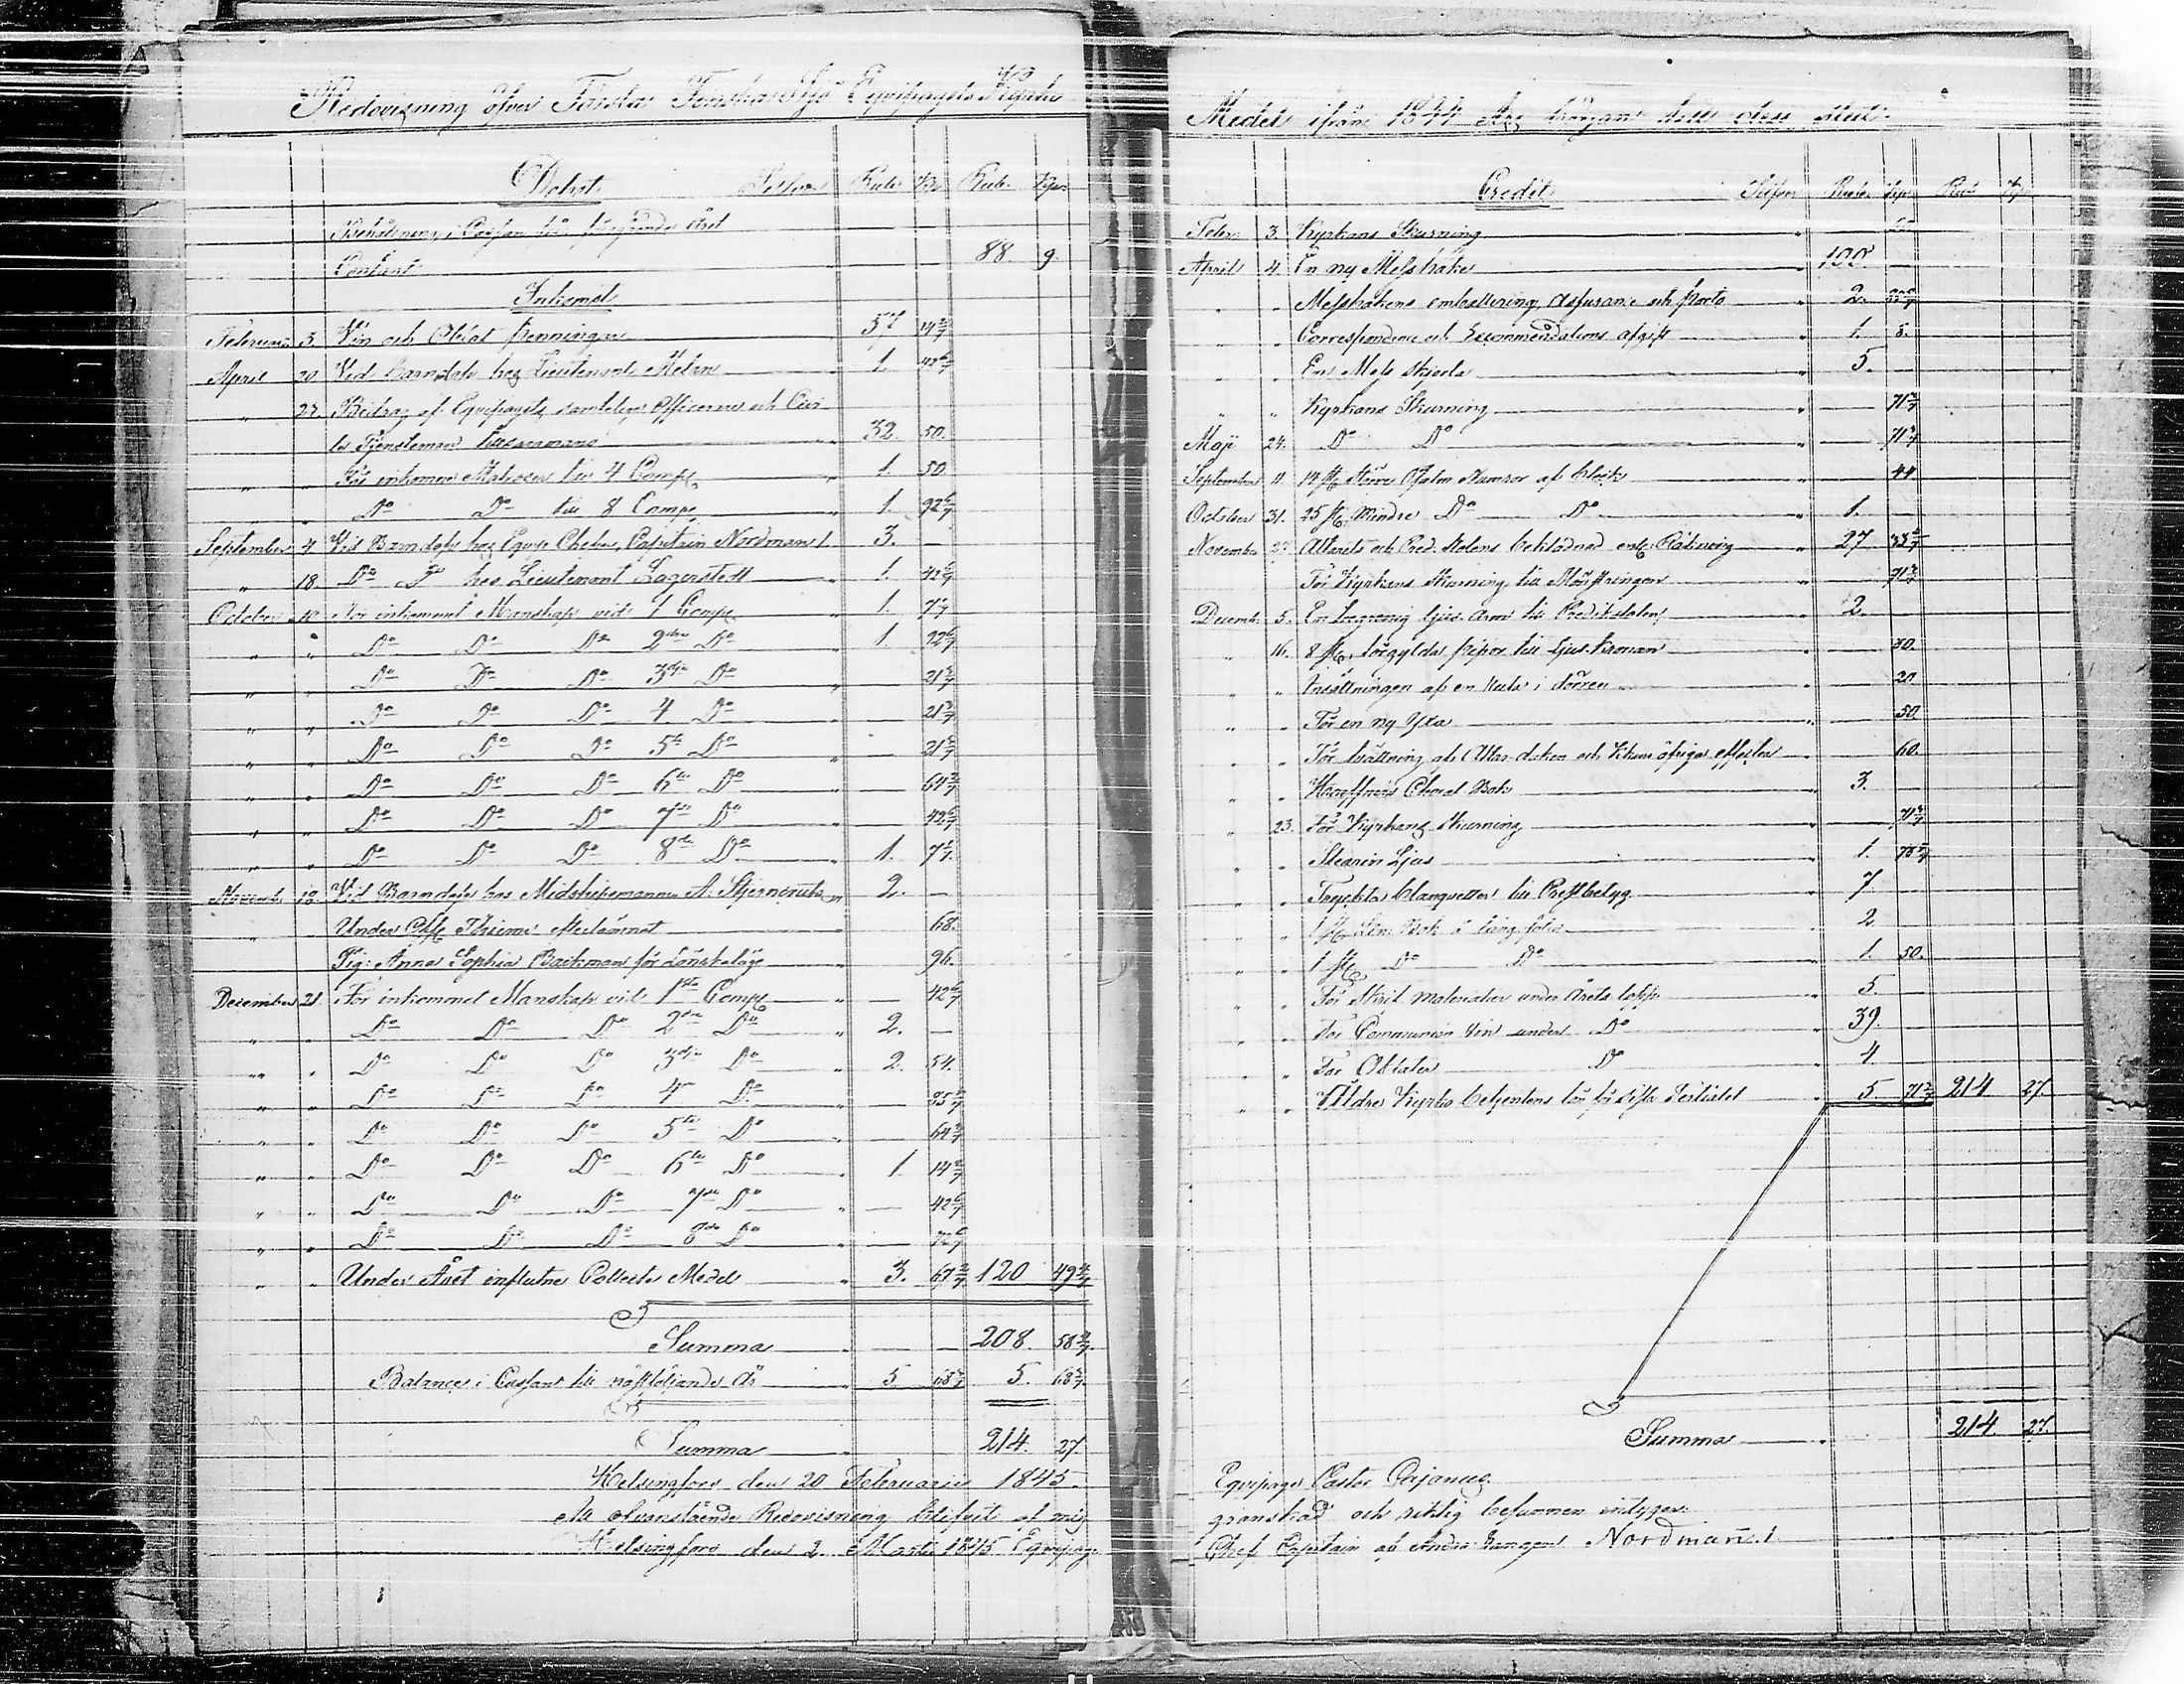 Redovisning öfver Första Finska Sjö Equipagets Kyrko
Debet Silfver Rub. Kp. Rub. Kpr.
Behållning i Cassan från föregående året
Contant 88. 9.
Inkomst
Februarii 3. Vin och Oblat penningar 57 14 2/7
April 20 Vid Barndop hos Lieutenant Melan 1. 42 6/7
" 27. Bidrag af Equipagets samtelige Officerare och Civi-
la Tjenstemän tillsammans 32. 50.
" " För inkomne Matroser till 4 Comp. 1. 50
" " Do Do till 8 Comp. 1. 92 6/7
September 4 Vid Barndop hos Equip. Chefen, Capitain Nordman 1 3. —
" 18. Do Do hos Lieutenant Lagerstedt 1. 42 6/7
October 10 För inkommet Manskap vid 1 Comp. 1. 7 1/7
" " Do Do Do 2dra Do 1. 22 6/7
" " Do Do Do 3dje Do — 21 3/7
" " Do Do Do 4 Do — 21 3/7
" " Do Do Do 5te Do — 21 3/7
" " Do Do Do 6te Do — 64 2/7
" " Do Do Do 7de Do — 42 6/7
" " Do Do Do 8de Do 1. 7 1/7
Novemb. 18. Vid Barndop hos Midshipsmannen A. Stjerncreutz 2. —
" Under Off. Thieme efterlämnat 68.
Pig. Anna Sophia Backman för Lönskaläge 96.
December 21. För inkommet Manskap vid 1sta Comp. — 42 6/7
" " Do Do Do 2dra Do 2. —
" " Do Do Do 3dje Do 2. 54.
" " Do Do Do 4 Do — 35 5/7
" " Do Do Do 5te Do — 64 2/7
" " Do Do Do 6te Do 1 14 2/7
" " Do Do Do 7de Do — 42 6/7
" " Do Do Do 8de Do — 72 6/7
" " Under Året influtne Collecte Medel 3. 67 2/7 120 49 2/7
Summa — — 208. 58 2/7
Balance i Cassan till nästföljande År 5 68 5/7 5. 68 5/7
Summa 214. 27.
Helsingfors den 20 Februarii 1845.
At ofvanstående Redovisning blifvit af mig
Helsingfors den 2. Martii 1845 Equipage
Medel ifrån 1844 Års början till dess slut.
Credit Silfver Rub. Kp. Rub. Kp.
Febr. 3. Kyrkans Skurning
April 4. En ny Messhake 100.
" " Messhakens emballering, Assurance och porto 2.
" " Correspondence och Recommendations afgift 1. 8.
" " En Mess skjorta 5.
" " Kyrkans Skurning — 71 3/7
Maji 24. Do Do — 71 3/7
September 11. 14 st. större Psalm Numror af bleck 44
October 31. 25 st. Mindre Do Do 1.
November 27. Altarets och Pred. stolens beklädnad enl. Räkning 27 33 5/7
För Kyrkans skurning till Mönstringen 71 3/7
Decemb. 5. En tregrenig ljus Arm till Predikstolen 2.
" 16. 8 st. förgylda pipor till ljus kronan 30.
" " Insättningen af en Ruta i dörren 20
" " För en ny Yxa 50
" " För tvättning af Altar duken och Kyrkans öfriga effecter 60.
" " Haeffners Choral Bok 3.
" 23. För Kyrkans skurning 71 3/7
" " Stearin Ljus 1. 78 4/7
" " Tryckta blanquetter till Prestbetyg 7
" " 1 st. Lin. Bok i lång folio 2
" " 1 st. Do Do 1. 50.
" " För Skrif materialier under Årets lopp 5.
" " För Communion Vin under Do 39.
" " För Oblater Do 4.
" " Äldre Kyrko betjentens lön för sista Tertialet 5. 71 3/7 214 27.
Summa 214 27.
Equipage Pastor Cajanus.
granskad och riktig befunnen intygar.
Chef. Capitain af Andra Rangen Nordman. 1.